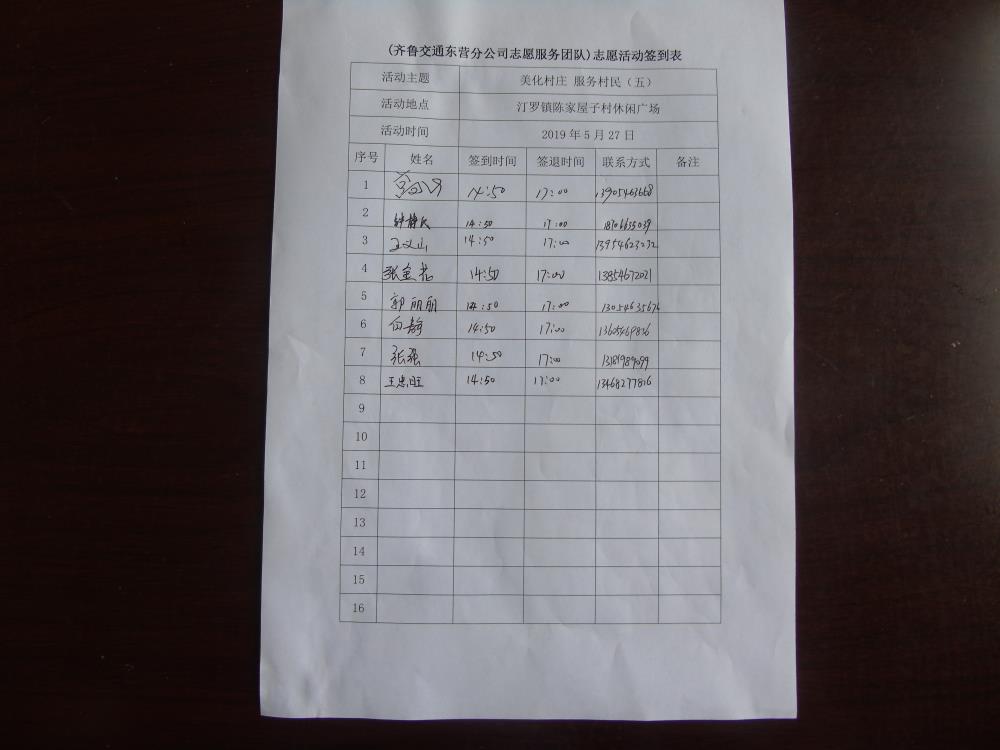 (齐鲁交通东营分公司志愿服务团队)志愿活动签到表
活动主题 美化村庄 服务村民（五）
活动地点 汀罗镇陈家屋子村休闲广场
活动时间 2019年5月27日
序号 姓名 签到时间 签退时间 联系方式 备注
1 14:50 17:00
2 14:50 17:00
3 王义山 14:50 17:00 13954623232
4 张金花 14:50 17:00 13854672021
5 郭丽丽 14:50 17:00
6 向静 14:50 17:00
7 张强 14:50 17:00 13181989099
8 王忠旺 14:50 17:00 13468277816
9
10
11
12
13
14
15
16